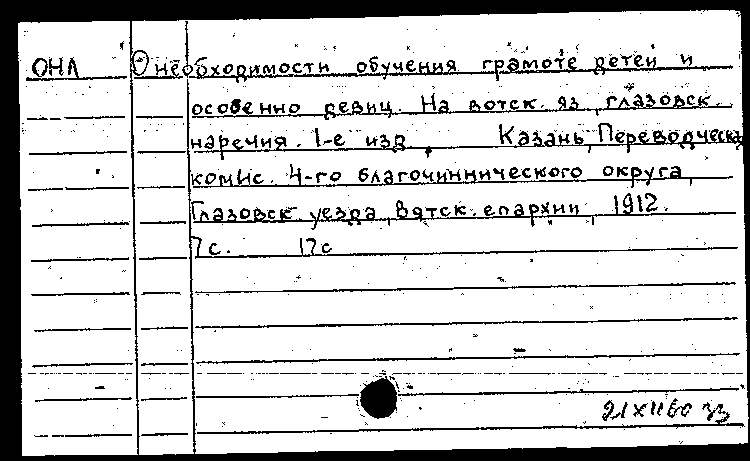 ОНЛ О необходимости обучения грамоте детей и
особенно девиц. На вотск. яз. глазовск.
наречия. 1-е изд. Казань, Переводческ.
комис. 4-го благочиннического округа,
Глазовск. уезда, Вятск. епархии, 1912.
7 с. 17с
21 XII 60